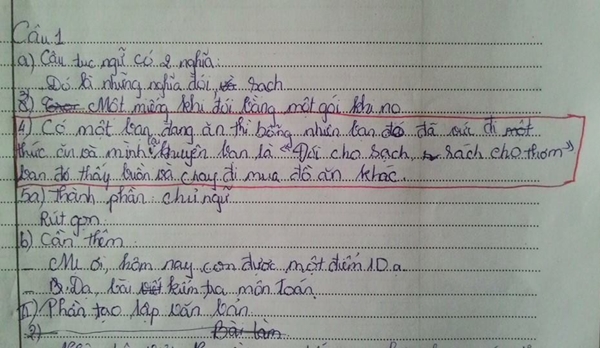 Câu 1
a) Câu tục ngữ có 2 nghĩa:
Đó là những nghĩa đói, sạch
3) Một miếng khi đói bằng một gói khi no
4) Có một bạn đang ăn thì bỗng nhiên bạn đó đã vứt đi một
thức ăn và mình khuyên bạn là "Đói cho sạch, rách cho thơm"
bạn đó thấy buồn và chạy đi mua đồ ăn khác.
5a) Thành phần chủ ngữ
Rút gọn
b) Cần thêm
_ Mẹ ơi, hôm nay con được một điểm 10 ạ.
_ Dạ, bài kiểm tra môn Toán
II) Phần tạo lập văn bản
2) Bài làm